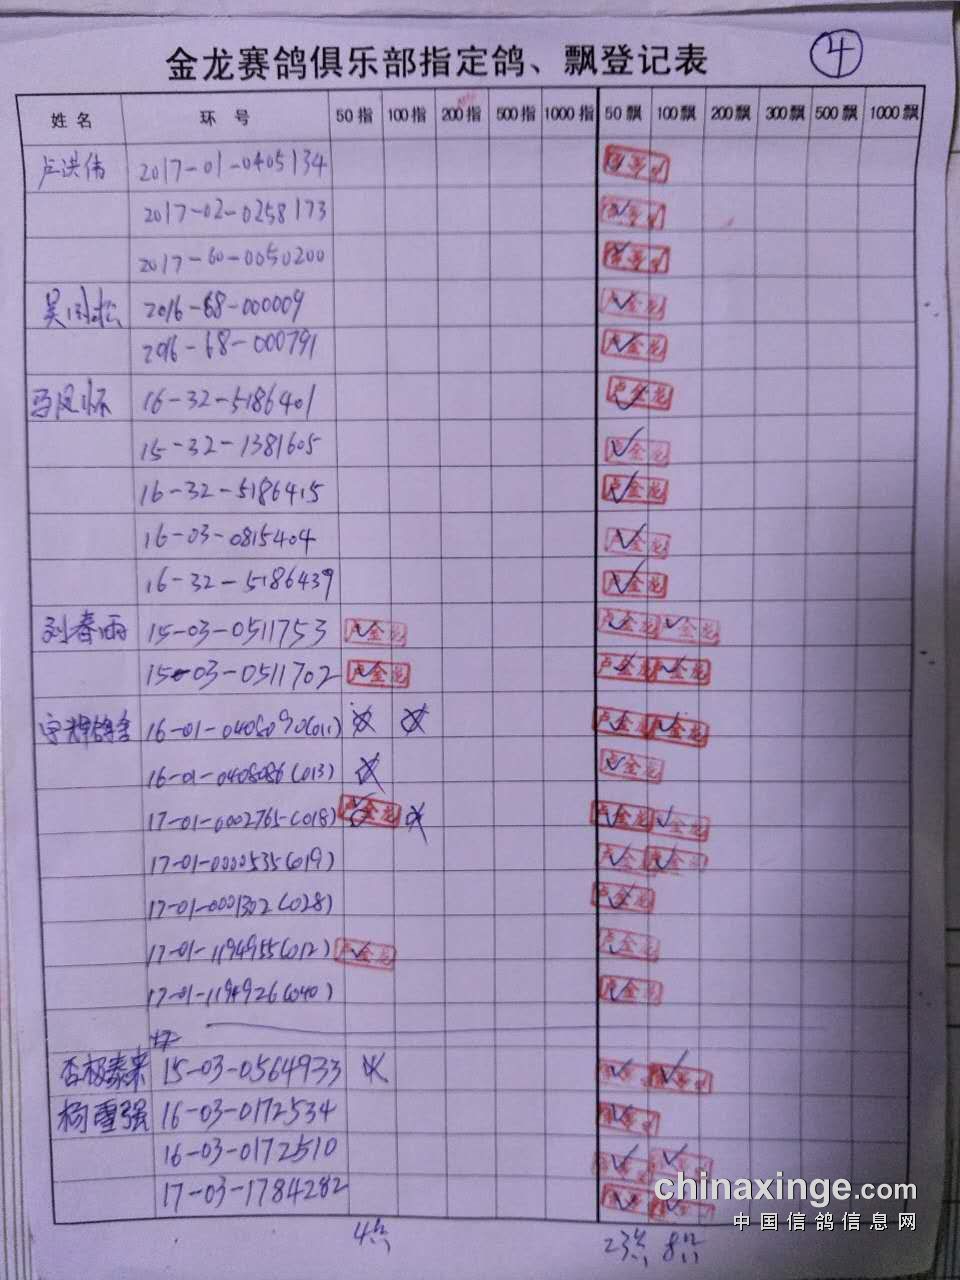 金龙赛鸽俱乐部指定鸽、飘登记表 4
姓名 环号 50指 100指 200指 500指 1000指 50飘 100飘 200飘 300飘 500飘 1000飘
卢洪伟 2017-01-0405134
2017-02-0258173
2017-60-0050200
吴国松 2016-68-000009
2016-68-000791 卢金龙
马凤怀 16-32-5186401 卢金龙
15-32-1381605 卢金龙
16-32-5186415 卢金龙
16-03-0815404 卢金龙
16-32-5186439 卢金龙
刘春雨 15-03-0511753 卢金龙 卢金龙 卢金龙
15-03-0511702 卢金龙 卢金龙 卢金龙
16-01-0408090(011) 卢金龙 卢金龙
16-01-0408086(013) 卢金龙
17-01-0002765(018) 卢金龙 卢金龙 卢金龙
17-01-0000535(019) 卢金龙 卢金龙
17-01-0001302(028) 卢金龙
17-01-1194955(012) 卢金龙 卢金龙
17-01-1194926(040) 卢金龙
否极泰来 15-03-0564933
杨雪强 16-03-0172534
16-03-0172510
17-03-1784282
4
23 8
chinaxinge.com
中国信鸽信息网